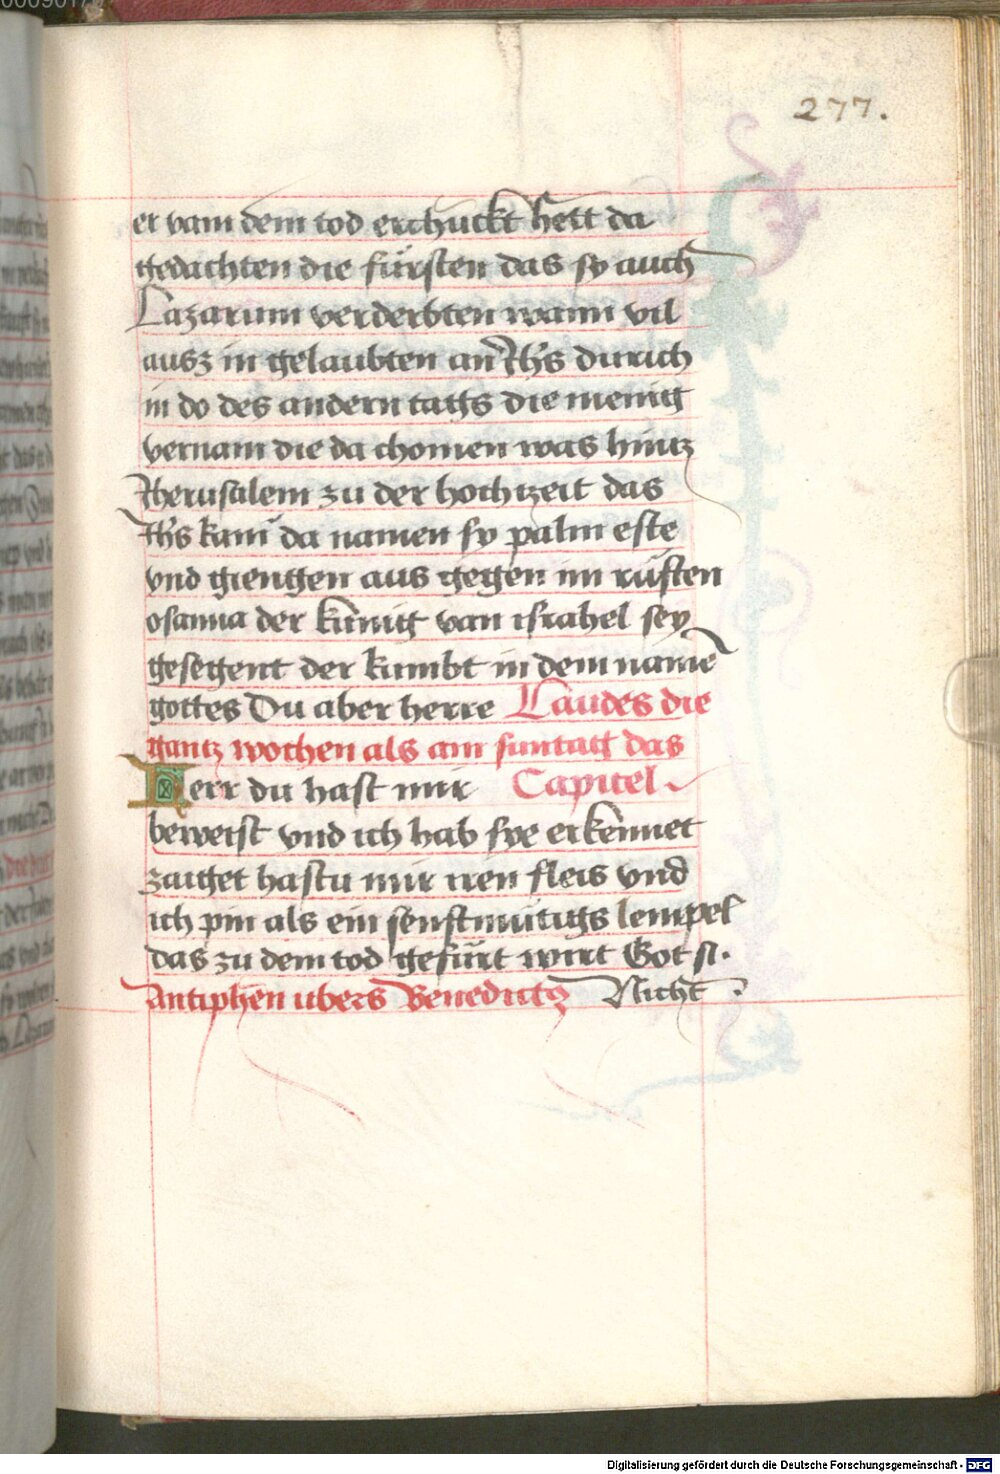 277.
er vam dem tod erchuckt hett da
gedachten die fürsten das sy auch
Lazarum verderbten wann vil
ausz in gelaubten an Jhs durich
in do des andern tags die menig
vernam die da chomen was hintz
Jherusalem zu der hochtzeit das
Jhs kam da namen sy palm este
vnd giengen aus gegen im rüften
osanna der künig van israhel sey
gesegent der kumbt in dem name
gottes Du aber herre Laudes die
gantz wochen als am suntag das
Herr du hast mir Capitel
beweist vnd ich hab sye erkennet
zaiget hastu mir iren fleis vnd
ich pin als ein senftmütigs lempel
das zu dem tod gefürt wirt Got si.
Antiphen ubers Benedictus Nicht
Digitalisierung gefördert durch die Deutsche Forschungsgemeinschaft - DFG